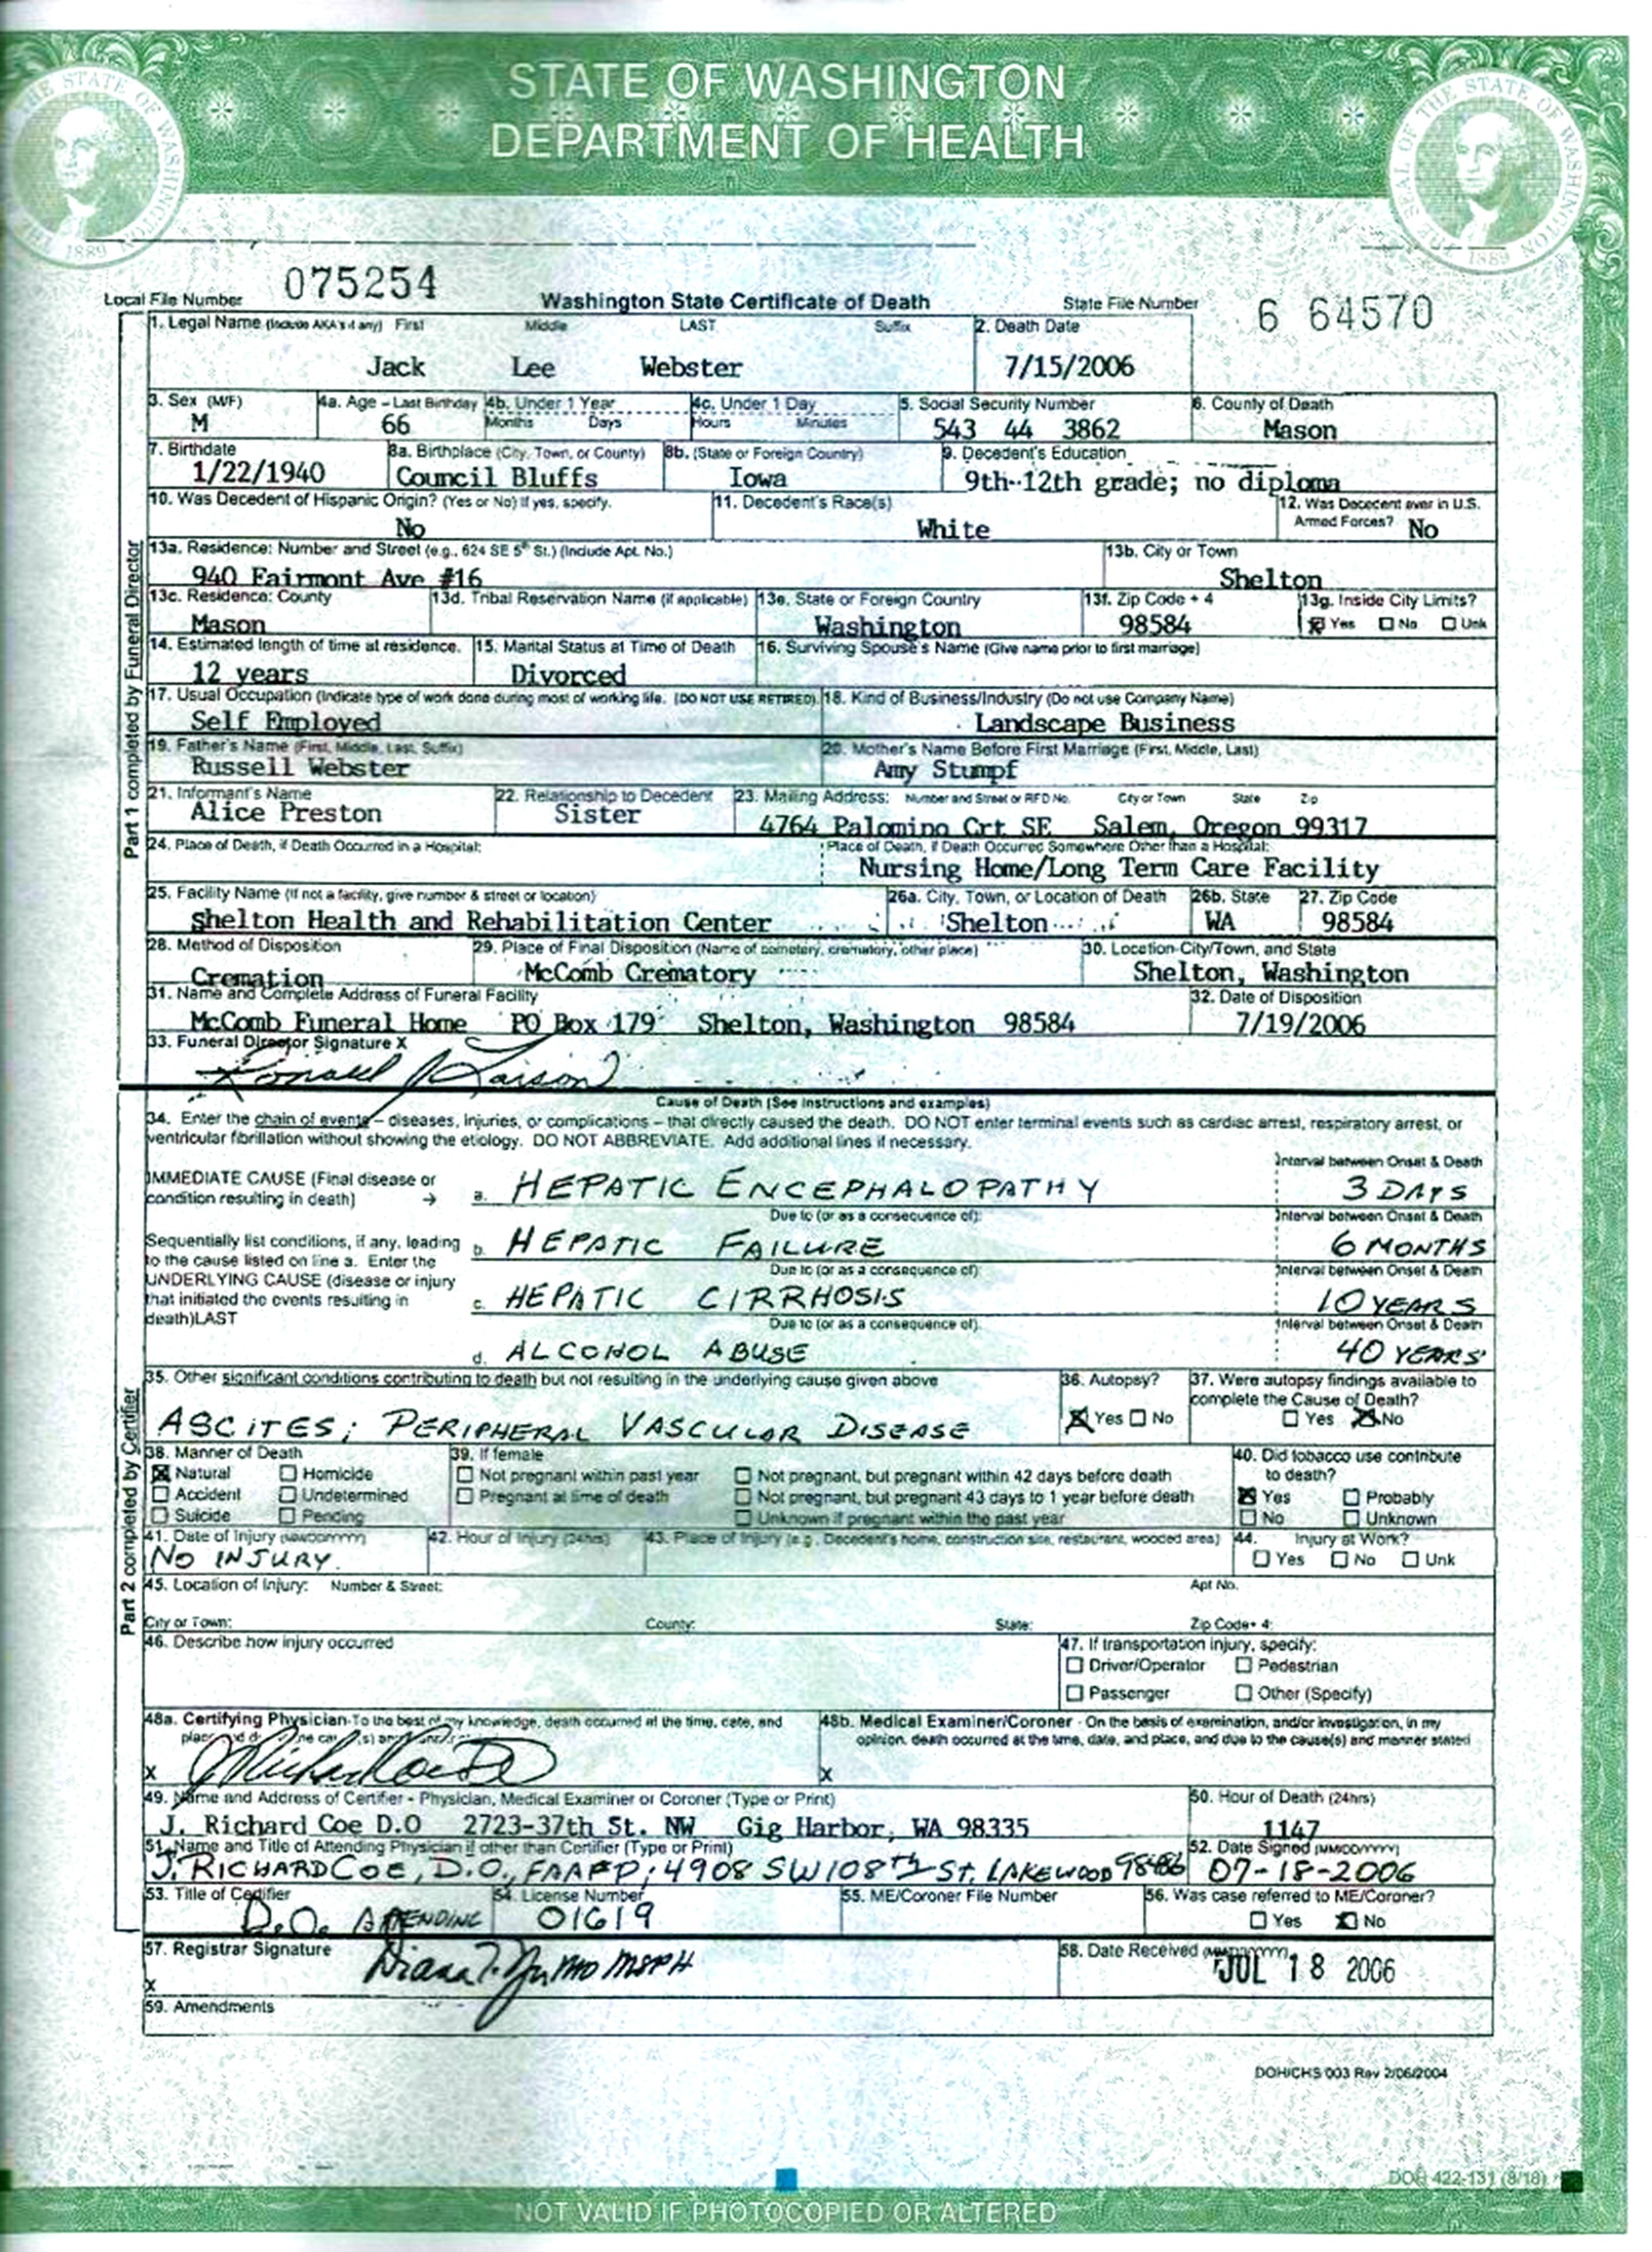 STATE OF WASHINGTON
DEPARTMENT OF HEALTH
1889
1889
Local File Number 075254 Washington State Certificate of Death State File Number 6 64570
1. Legal Name (Include AKA's if any) First Middle LAST Suffix 2. Death Date
Jack Lee Webster 7/15/2006
3. Sex (M/F) 4a. Age – Last Birthday 4b. Under 1 Year 4c. Under 1 Day 5. Social Security Number 6. County of Death
M 66 Months Days Hours Minutes 543 44 3862 Mason
7. Birthdate 8a. Birthplace (City, Town, or County) 8b. (State or Foreign Country) 9. Decedent's Education
1/22/1940 Council Bluffs Iowa 9th-12th grade; no diploma
10. Was Decedent of Hispanic Origin? (Yes or No) If yes, specify. 11. Decedent's Race(s) 12. Was Decedent ever in U.S. Armed Forces?
No White No
13a. Residence: Number and Street (e.g., 624 SE 5th St.) (Include Apt. No.) 13b. City or Town
940 Fairmont Ave #16 Shelton
13c. Residence: County 13d. Tribal Reservation Name (if applicable) 13e. State or Foreign Country 13f. Zip Code + 4 13g. Inside City Limits?
Mason Washington 98584 Yes No Unk
14. Estimated length of time at residence. 15. Marital Status at Time of Death 16. Surviving Spouse's Name (Give name prior to first marriage)
12 years Divorced
17. Usual Occupation (Indicate type of work done during most of working life. (DO NOT USE RETIRED) 18. Kind of Business/Industry (Do not use Company Name)
Self Employed Landscape Business
19. Father's Name (First, Middle, Last, Suffix) 20. Mother's Name Before First Marriage (First, Middle, Last)
Russell Webster Amy Stumpf
21. Informant's Name 22. Relationship to Decedent 23. Mailing Address: Number and Street or RFD No. City or Town State Zip
Alice Preston Sister 4764 Palomino Crt SE Salem, Oregon 99317
24. Place of Death, if Death Occurred in a Hospital: Place of Death, if Death Occurred Somewhere Other than a Hospital:
Nursing Home/Long Term Care Facility
25. Facility Name (If not a facility, give number & street or location) 26a. City, Town, or Location of Death 26b. State 27. Zip Code
Shelton Health and Rehabilitation Center Shelton WA 98584
28. Method of Disposition 29. Place of Final Disposition (Name of cemetery, crematory, other place) 30. Location-City/Town, and State
Cremation McComb Crematory Shelton, Washington
31. Name and Complete Address of Funeral Facility 32. Date of Disposition
McComb Funeral Home PO Box 179 Shelton, Washington 98584 7/19/2006
33. Funeral Director Signature X
Part 1 completed by Funeral Director
Cause of Death (See instructions and examples)
34. Enter the chain of events – diseases, injuries, or complications – that directly caused the death. DO NOT enter terminal events such as cardiac arrest, respiratory arrest, or
ventricular fibrillation without showing the etiology. DO NOT ABBREVIATE. Add additional lines if necessary.
Interval between Onset & Death
IMMEDIATE CAUSE (Final disease or condition resulting in death) → a. HEPATIC ENCEPHALOPATHY 3 DAYS
Due to (or as a consequence of): Interval between Onset & Death
Sequentially list conditions, if any, leading to the cause listed on line a. Enter the UNDERLYING CAUSE (disease or injury that initiated the events resulting in death)LAST
b. HEPATIC FAILURE 6 MONTHS
Due to (or as a consequence of): Interval between Onset & Death
c. HEPATIC CIRRHOSIS 10 YEARS
Due to (or as a consequence of): Interval between Onset & Death
d. ALCOHOL ABUSE 40 YEARS
35. Other significant conditions contributing to death but not resulting in the underlying cause given above 36. Autopsy? 37. Were autopsy findings available to complete the Cause of Death?
ASCITES; PERIPHERAL VASCULAR DISEASE Yes No Yes No
38. Manner of Death 39. If female 40. Did tobacco use contribute to death?
Natural Homicide Not pregnant within past year Not pregnant, but pregnant within 42 days before death
Accident Undetermined Pregnant at time of death Not pregnant, but pregnant 43 days to 1 year before death Yes Probably
Suicide Pending Unknown if pregnant within the past year No Unknown
41. Date of Injury (MM/DD/YYYY) 42. Hour of Injury (24hrs) 43. Place of Injury (e.g., Decedent's home, construction site, restaurant, wooded area) 44. Injury at Work?
NO INJURY. Yes No Unk
45. Location of Injury: Number & Street: Apt No.
City or Town: County: State: Zip Code+ 4:
46. Describe how injury occurred 47. If transportation injury, specify:
Driver/Operator Pedestrian
Passenger Other (Specify)
Part 2 completed by Certifier
48a. Certifying Physician-To the best of my knowledge, death occurred at the time, date, and 48b. Medical Examiner/Coroner - On the basis of examination, and/or investigation, in my
opinion, death occurred at the time, date, and place, and due to the cause(s) and manner stated
X X
49. Name and Address of Certifier - Physician, Medical Examiner or Coroner (Type or Print) 50. Hour of Death (24hrs)
J. Richard Coe D.O 2723-37th St. NW Gig Harbor, WA 98335 1147
51. Name and Title of Attending Physician if other than Certifier (Type or Print) 52. Date Signed (MM/DD/YYYY)
J. RICHARD COE, D.O., FAAFP; 4908 SW 108TH ST. LAKEWOOD 07-18-2006
53. Title of Certifier 54. License Number 55. ME/Coroner File Number 56. Was case referred to ME/Coroner?
D.O. ATTENDING 01619 Yes No
57. Registrar Signature 58. Date Received (MM/DD/YYYY)
X Diana T. MPH JUL 18 2006
59. Amendments
DOH/CHS 003 Rev 2/06/2004
DOH 422-131 (8/18)
NOT VALID IF PHOTOCOPIED OR ALTERED